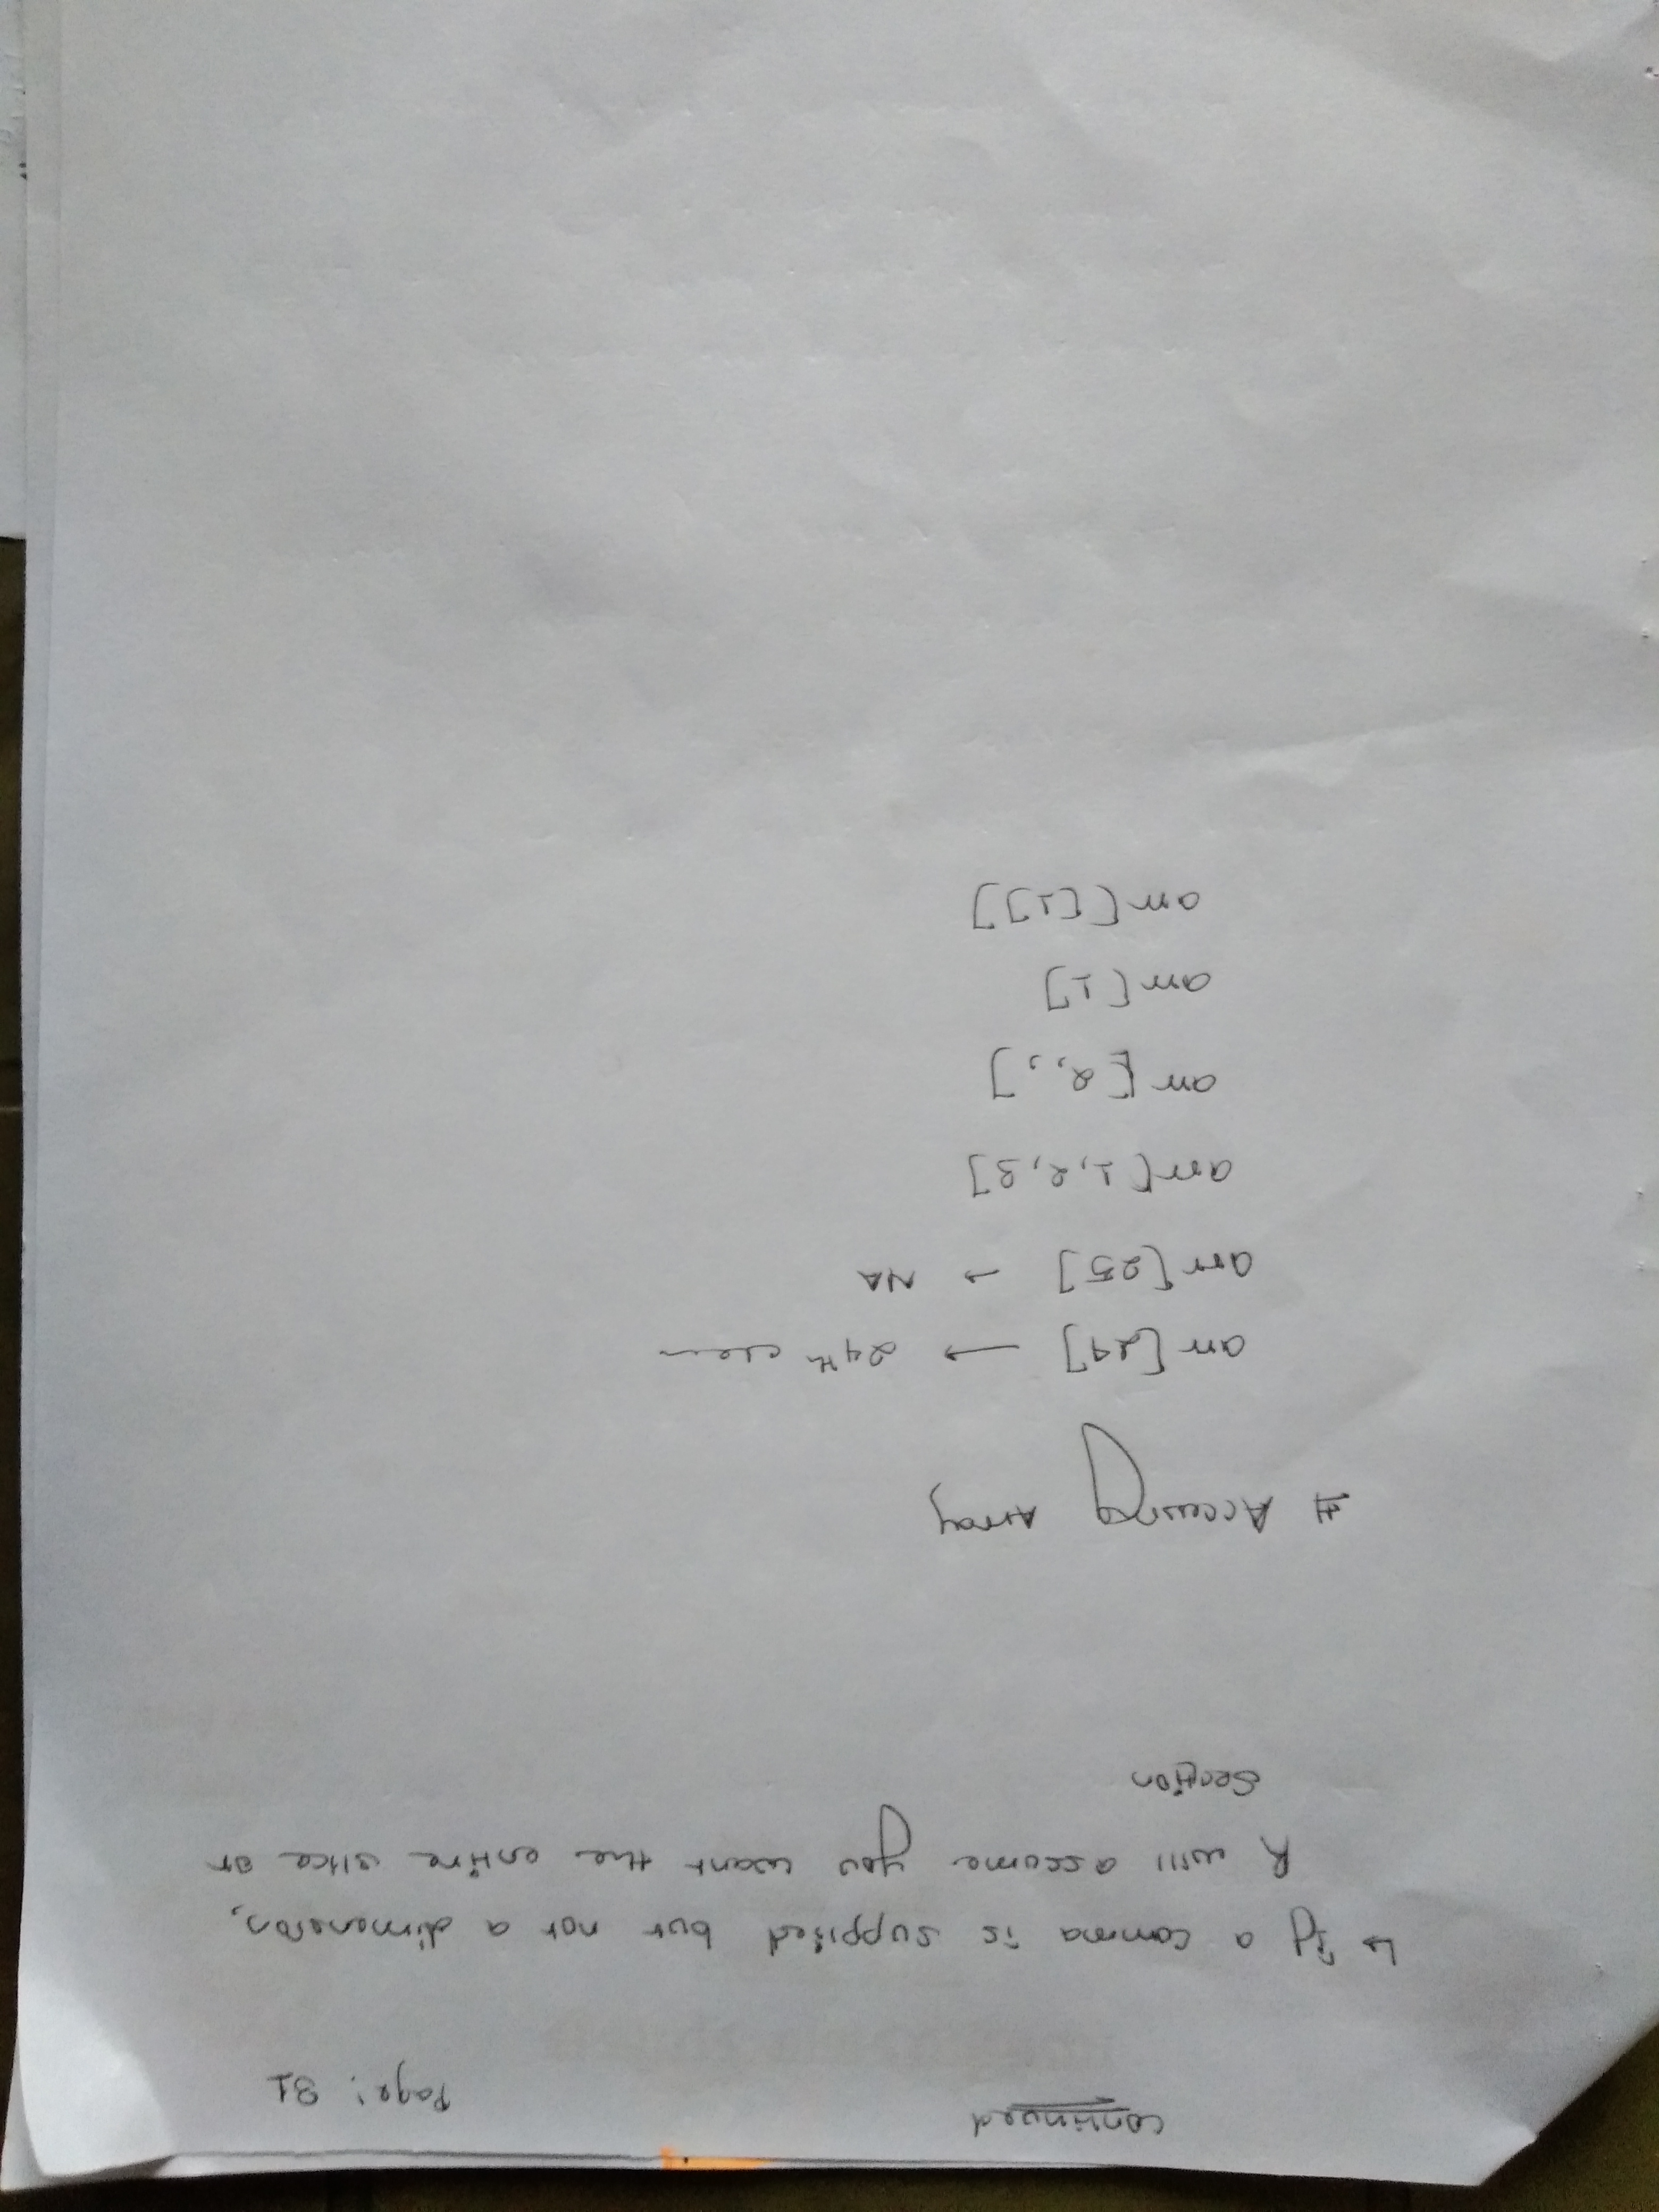 continued
Page: 31
↳ if a comma is supplied but not a dimension,
R will assume you want the entire slice or
section
# Accessing Array
arr [24] → 24th elem
arr [25] → NA
arr [1,2,3]
arr [2,,]
arr [1]
arr [[1]]